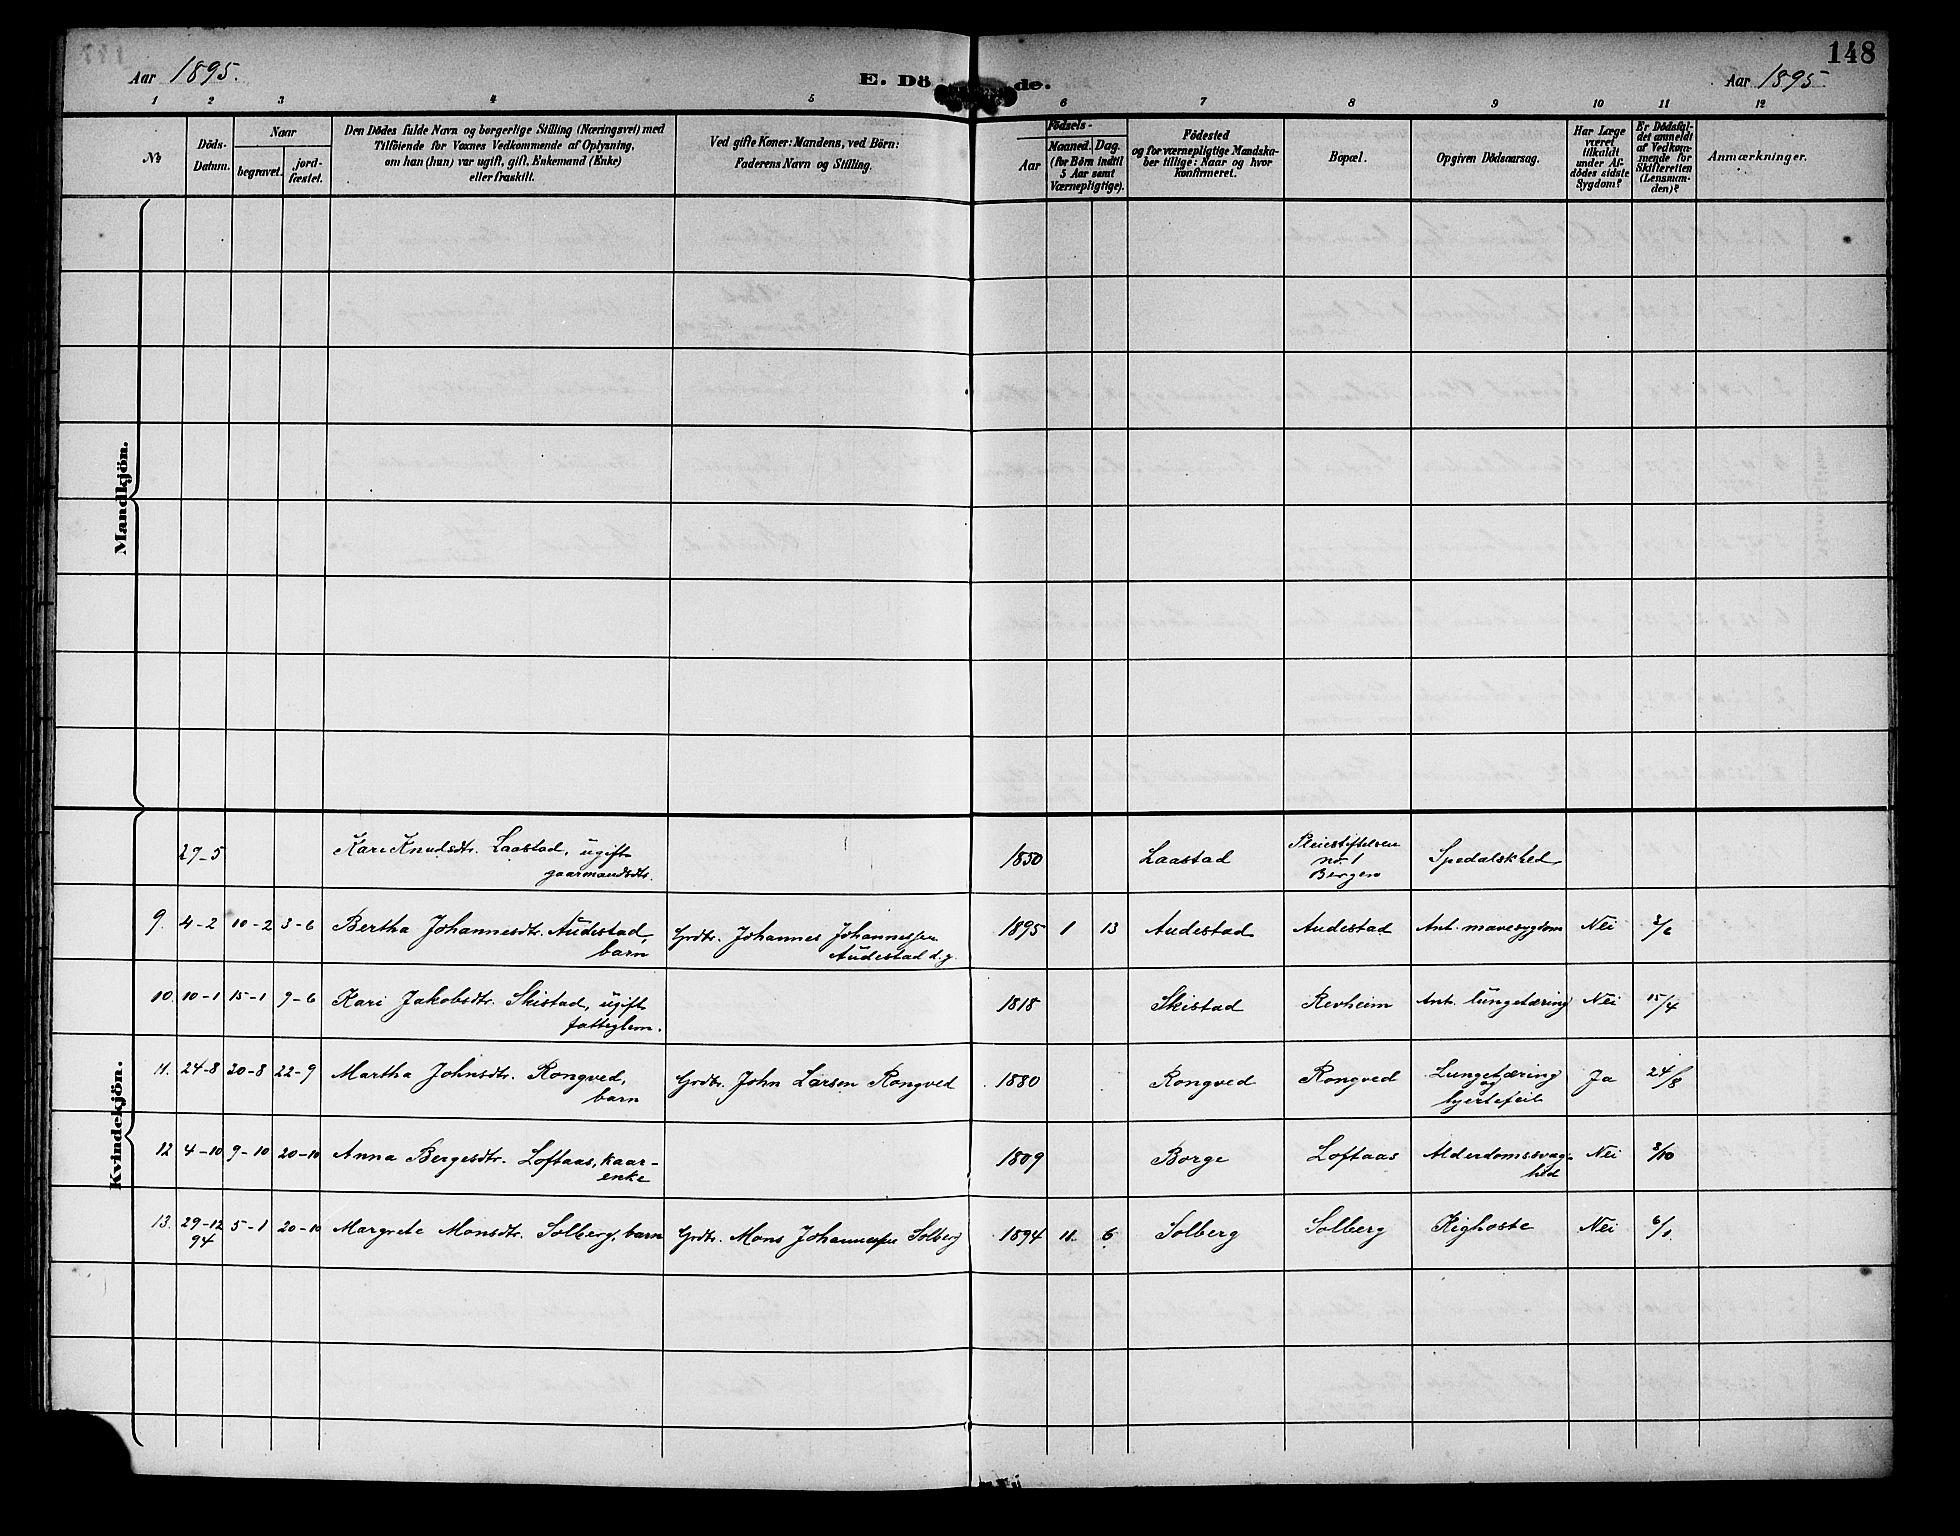 148
Aar 1895.
E. Dö de.
Aar 1895
1 2 3 4 5 6 7 8 9 10 11 12
No
Döds-
Datum.
Naar
begravet.
jord-
fæstet.
Den Dödes fulde Navn og borgerlige Stilling (Næringsvei) med
Tilföiende for Voxnes Vedkommende af Oplysning,
om han (hun) var ugift, gift, Enkemand (Enke)
eller fraskilt.
Ved gifte Koner: Mandens, ved Börn:
Faderens Navn og Stilling.
Födsels-
Aar
Maaned.
Dag.
(for Börn indtil
5 Aar samt
Værnepligtige).
Födested
og for værnepligtige Mandska-
ber tillige: Naar og hvor
konfirmeret.
Bopæl.
Opgiven Dödsaarsag.
Har Læge
været
tilkaldt
under Af-
dödes sidste
Sygdom?
Er Dödsfal-
det anmeldt
af Vedkom-
mende for
Skifteretten
(Lensman-
den)?
Anmærkninger.
Mandkjön.
Kvindekjön.
27-5 Kari Knudsdtr. Laastad, ugift 1850 Laastad Pleiestiftelsen Spedalskhed
gaarmandsdtr. no. 1
Bergen
9. 4-2 10-2 3-6 Bertha Johannesdtr. Audestad, Grdtr. Johannes Johannessen 1895 1 13 Audestad Audestad Ant. mavesygdom Nei 3/6
barn Audestad d.y.
10. 10-1 15-1 9-6 Kari Jakobsdtr. Skistad, ugift 1818 Skistad Revheim Ant. lungetæring Nei 15/4
fattiglem.
11. 24-8 30-8 22-9 Martha Johnsdtr. Rongved, Grdtr. John Larsen Rongved 1880 Rongved Rongved Lungetæring Ja 24/8
barn og
hjertefeil
12 4-10 9-10 20-10 Anna Bergesdtr. Loftaas, kaar- 1809 Borge Loftaas Alderdomssvag- Nei 8/10
enke hed
13. 29-12 5-1 20-10 Margrete Monsdtr. Solberg, barn Grdtr. Mons Johannessen Solberg 1894 11. 6 Solberg Solberg Kighoste Nei 6/1.
94